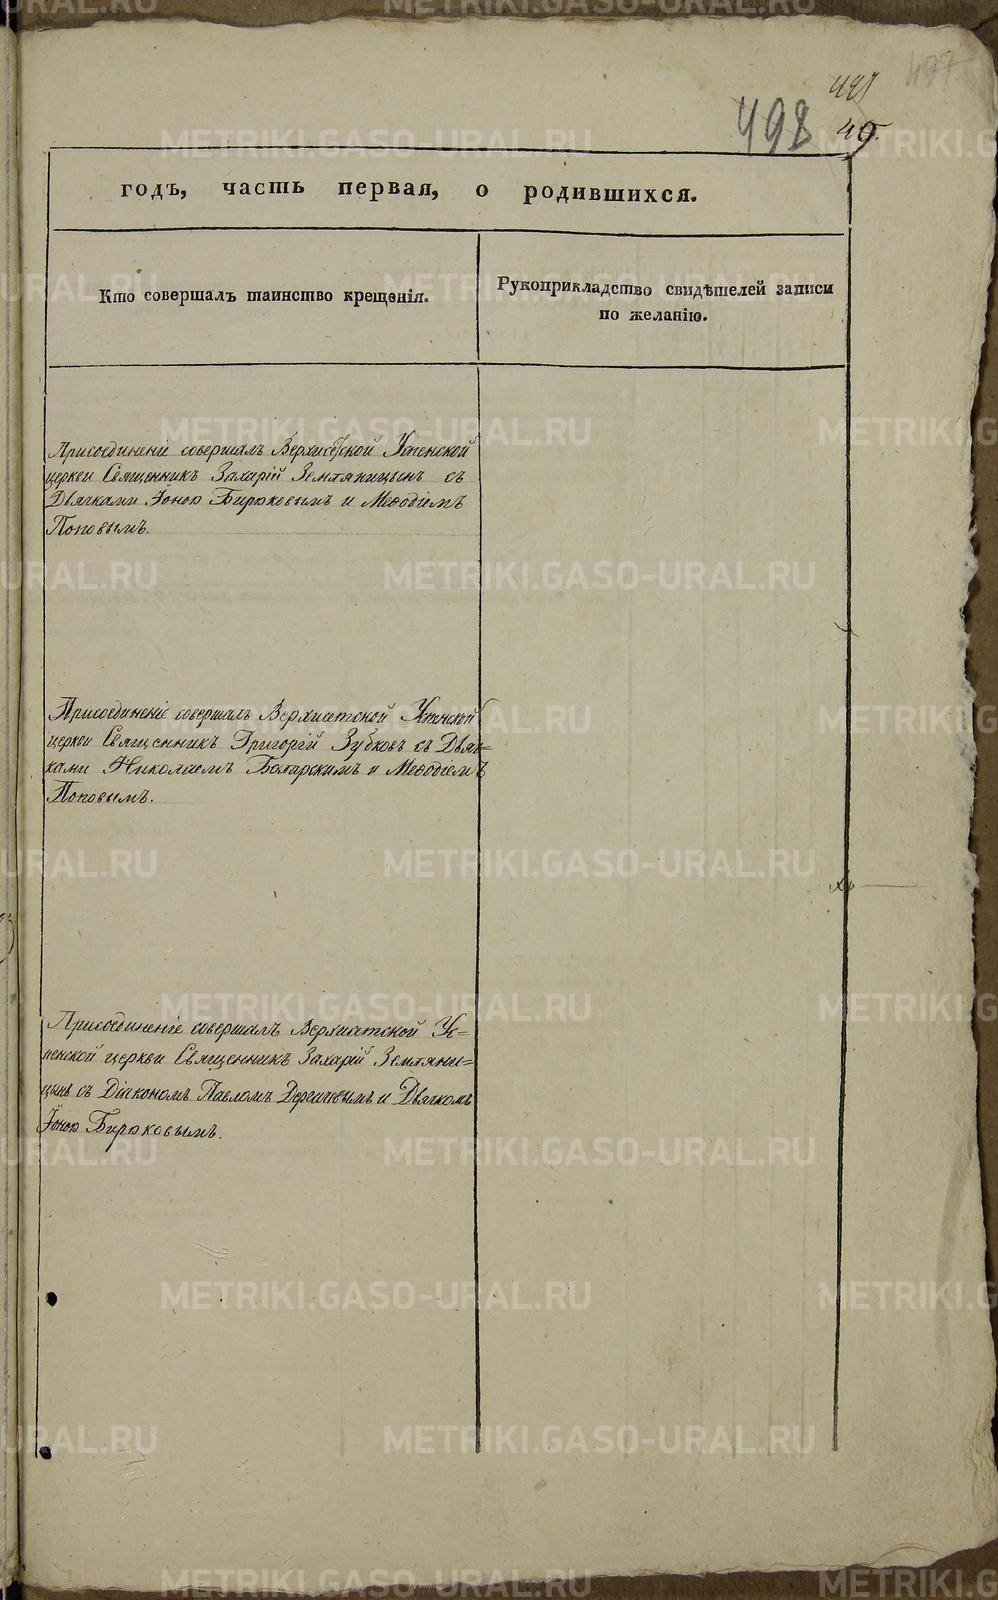 498
49.
годъ, часть первая, о родившихся.
Кто совершалъ таинство крещенія.
Рукоприкладство свидѣтелей записи
по желанію.
Присоединеніе совершалъ Успенской
церкви Священникъ Захарій Земляницынъ съ
Дьячками Іоною Бирюковымъ и Меѳодіемъ
Поповымъ.
Присоединеніе совершалъ Верхисетской Успенской
церкви Священникъ Григорій Зубковъ съ Дьяч=
ками Николаемъ и Меѳодіемъ
Поповымъ.
Присоединеніе совершалъ Верхисетской Ус=
пенской церкви Священникъ Захарій Земляни=
цынъ съ Діакономъ Павломъ и Дьячкомъ
Іоною Бирюковымъ.
METRIKI.GASO-URAL.RU